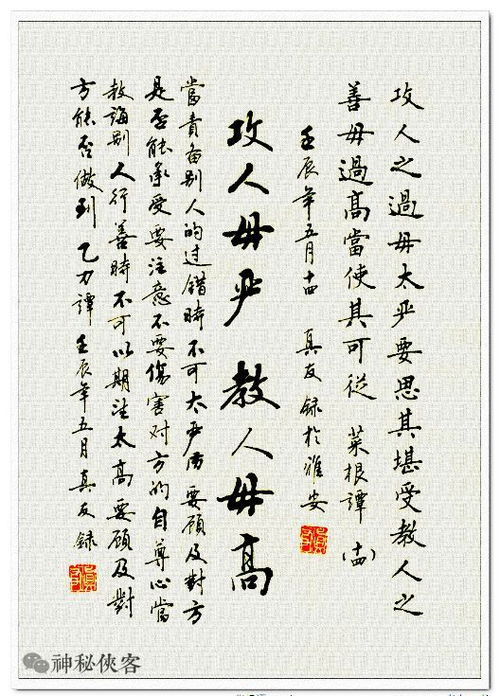 攻人之過毋太严要思其堪受教人之
善毋過高當使其可從 菜根譚 (十四)
壬辰年五月十四 真友録於雅安
攻人毋严 教人毋高
當責备别人的过錯時不可太严厉要顾及對方
是否能承受要注意不要傷害对方的自尊心當
教誨别人行善時不可以期望太高要顾及對
方能否做到 乙力譚 壬辰年五月真友録
神秘俠客